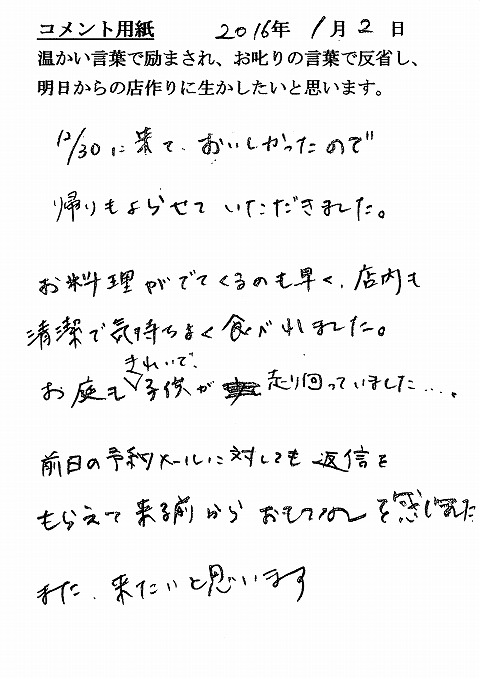 コメント用紙 2016年 1月 2日
温かい言葉で励まされ、お叱りの言葉で反省し、
明日からの店作りに生かしたいと思います。
12/30に来て、おいしかったので
帰りもよらせていただきました。
お料理がでてくるのも早く、店内も
清潔で気持ちよく食べれました。
お庭もきれいで、子供が走り回っていました…。
前日の予約メールに対しても返信を
もらえて来る前からおもてなしを感じました
また、来たいと思います